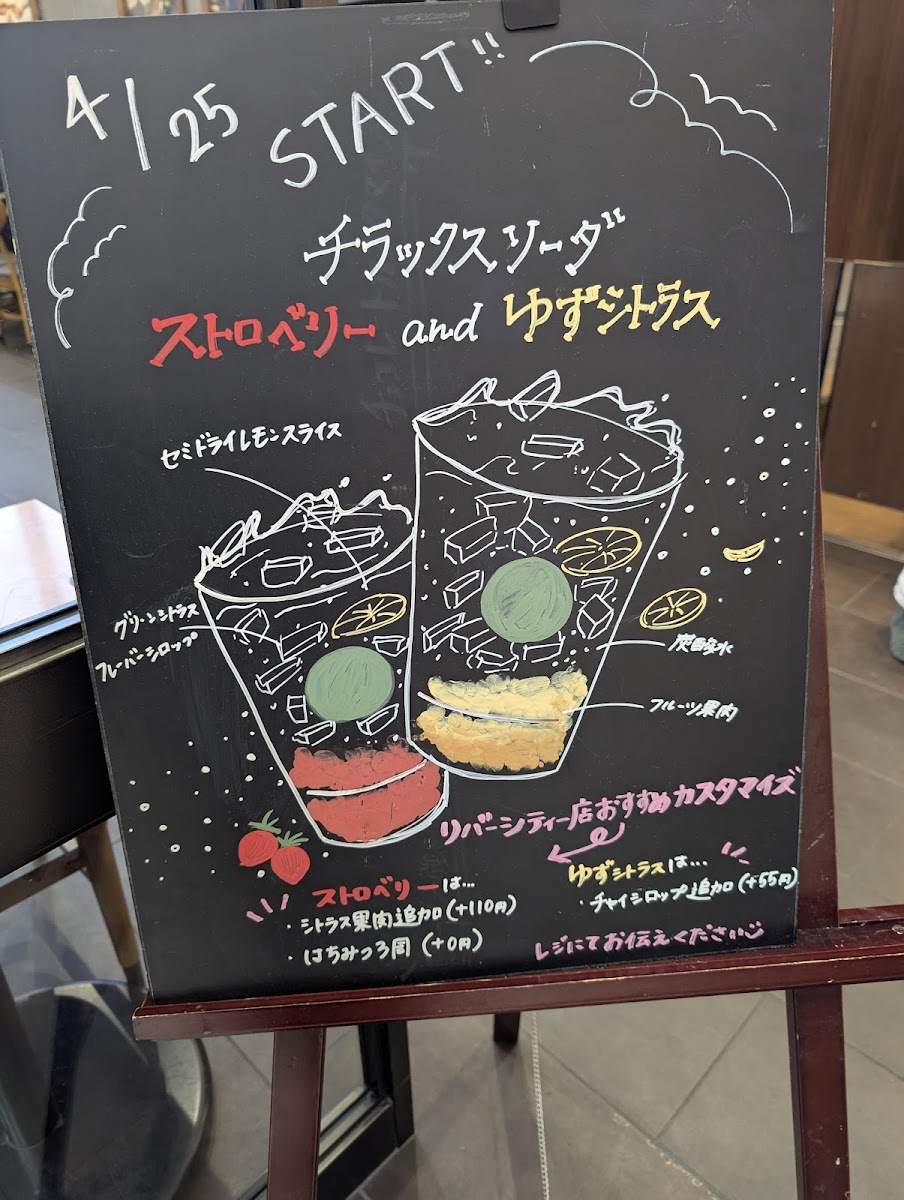 4/25 START!!
チラックスソーダ
ストロベリー and ゆずシトラス
セミドライレモンスライス
グリーンシトラス
フレーバーシロップ
炭酸水
フルーツ果肉
リバーシティー店おすすめカスタマイズ
ストロベリーは...
・シトラス果肉追加(+110円)
・はちみつ3周(+0円)
ゆずシトラスは...
・チャイシロップ追加(+55円)
レジにてお伝えください